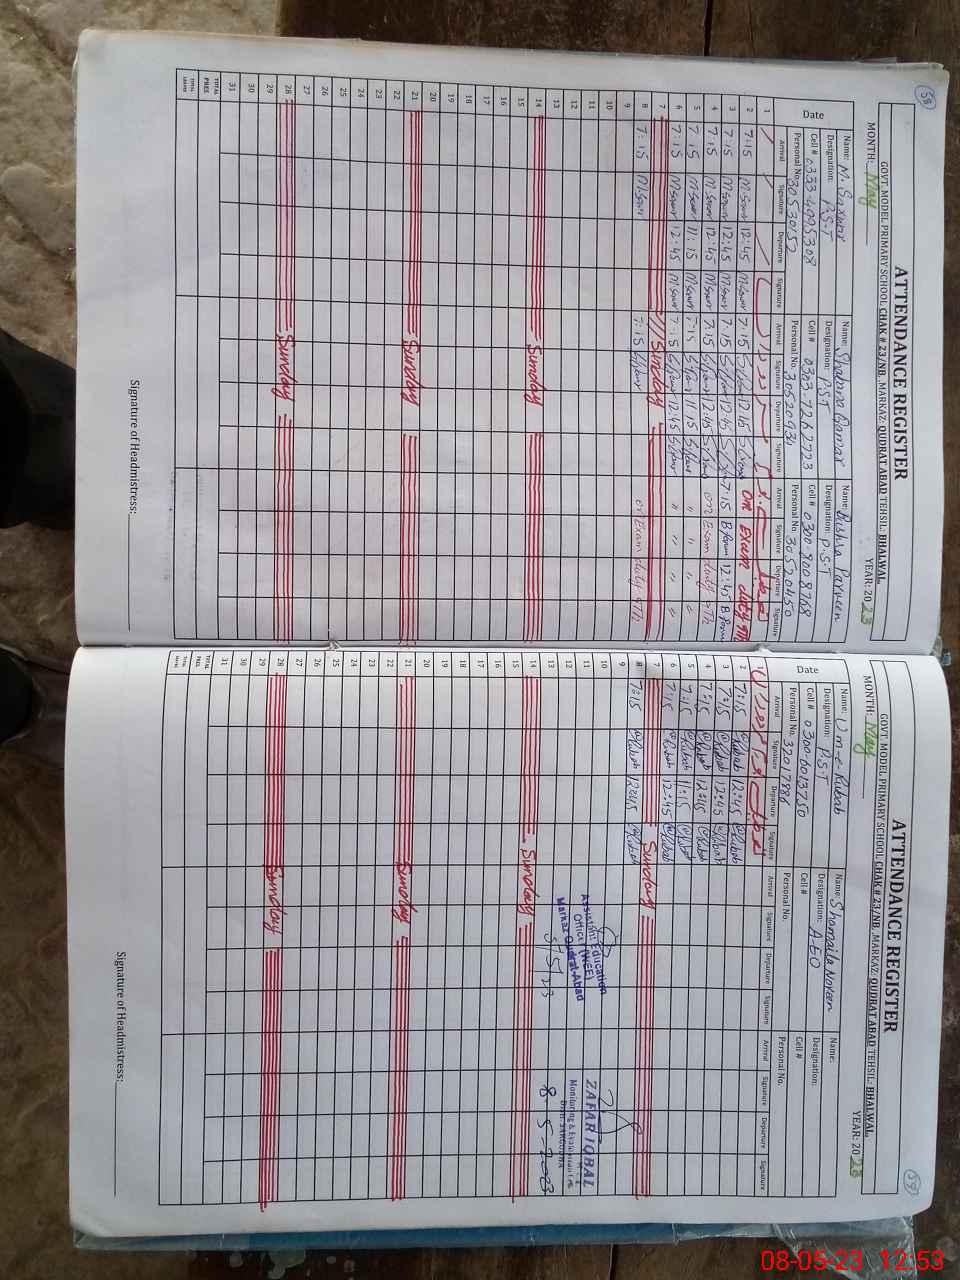 58
ATTENDANCE REGISTER
GOVT. MODEL PRIMARY SCHOOL CHAK # 23/NB, MARKAZ: QUDRAT ABAD TEHSIL: BHALWAL
MONTH: May YEAR: 2023
Date
Name: M. Sarwar Name: Name: Bushra Parveen
Designation: P.S.T Designation: P.S.T Designation: P.S.T
Cell # 0333 4995308 Cell # 0303-7262723 Cell # 0300-9008768
Personal No. 30530152 Personal No. 30520931 Personal No. 30520450
Arrival Signature Departure Signature Arrival Signature Departure Signature Arrival Signature Departure Signature
1
2 7:15 12:45 7:15 12:45 on Exam duty
3 7:15 12:45 7:15 12:45 7:15 12:45
4 7:15 12:45 7:15 12:45 on Exam duty
5 7:15 11:15 7:15 11:15 " " " "
6 7:15 12:45 7:15 12:45 " " " "
7 Sunday
8 7:15 7:15 on Exam duty
9
10
11
12
13
14 Sunday
15
16
17
18
19
20
21 Sunday
22
23
24
25
26
27
28 Sunday
29
30
31
TOTAL PRES
TOTAL LEAVE
Signature of Headmistress:
59
ATTENDANCE REGISTER
GOVT. MODEL PRIMARY SCHOOL CHAK # 23/NB, MARKAZ: QUDRAT ABAD TEHSIL: BHALWAL
MONTH: May YEAR: 2023
Date
Name: Um-e-Rubab Name: Shomaila Noreen Name:
Designation: P.S.T Designation: A-EO Designation:
Cell # 0300 6013750 Cell # Cell #
Personal No. 32017886 Personal No. Personal No.
Arrival Signature Departure Signature Arrival Signature Departure Signature Arrival Signature Departure Signature
1
2 7:15 Rubab 12:45 Rubab
3 7:15 Rubab 12:45 Rubab
4 7:15 Rubab 12:45 Rubab
5 7:15 Rubab 11:15 Rubab
6 7:15 Rubab 12:45 Rubab
7 Sunday
8 7:15 Rubab 12:45 Rubab
9
10
11
12
13
14 Sunday
15
16
17
18
19
20
21 Sunday
22
23
24
25
26
27
28 Sunday
29
30
31
TOTAL PRES
TOTAL LEAVE
Assistant Education
Office (WEE)
Markaz Qudrat Abad
ZAFAR IQBAL
Monitoring & Evaluation
Distt. SARGODHA
8-5-2023
Signature of Headmistress:
08-05-23 12:53